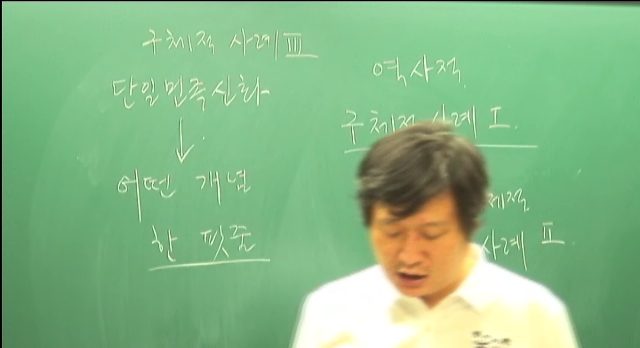 구체적 사례 Ⅲ
단일민족신화
↓
어떤 개념
한 핏줄
역사적
구체적 사례 Ⅰ.
체적
사례 Ⅱ.